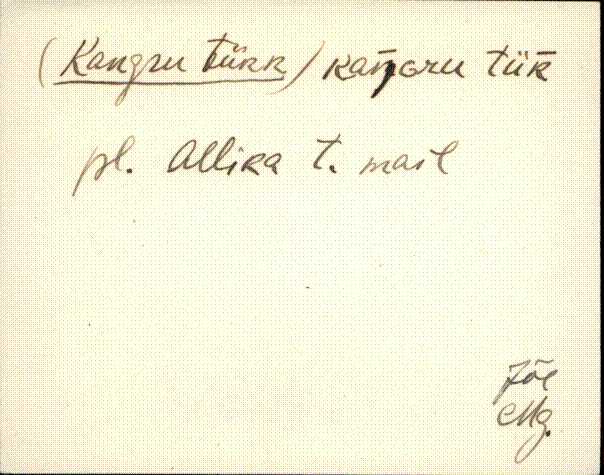 (Kangru tükk) kaŋgru tük̄
pl. Allika t. maal
Jõe
Mg.